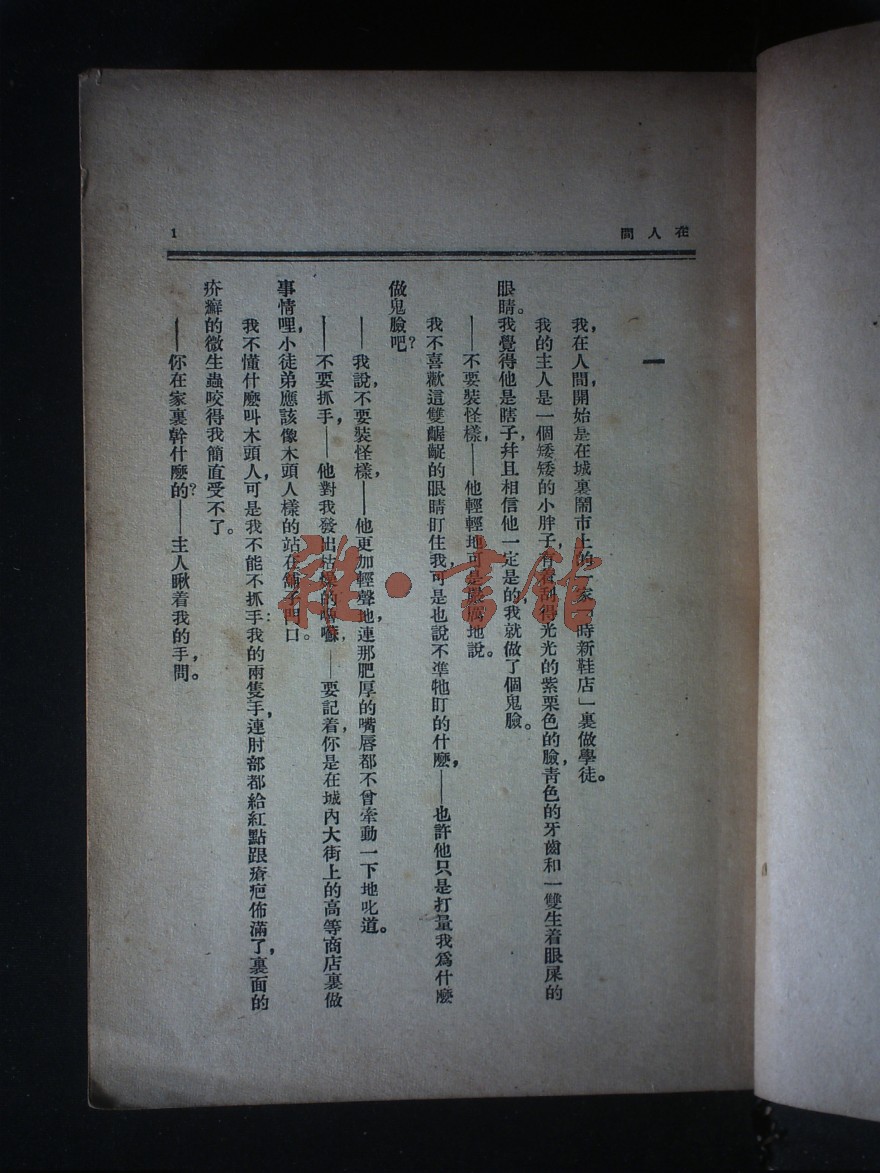 在人間
1
一
我,在人間,開始是在城裏鬧市上的一家「時新鞋店」裏做學徒。
我的主人是一個矮矮的小胖子,有着刮得光光的紫栗色的臉,青色的牙齒和一雙生着眼屎的
眼睛。我覺得他是瞎子,幷且相信他一定是的,我就做了個鬼臉。
——不要裝怪樣,——他輕輕地可是嚴厲地說。
我不喜歡這雙齷齪的眼睛盯住我,可是也說不準牠盯的什麼,——也許他只是打量我爲什麼
做鬼臉吧?
——我說,不要裝怪樣,——他更加輕聲地,連那肥厚的嘴唇都不曾牽動一下地叱道。
——不要抓手,——他對我發出枯燥的嚕囌,——要記着,你是在城內大街上的高等商店裏做
事情哩,小徒弟應該像木頭人樣的站在舖子門口。
我不懂什麼叫木頭人,可是我不能不抓手:我的兩隻手,連肘部都給紅點跟瘡疤佈滿了,裏面的
疥癬的微生蟲咬得我簡直受不了。
——你在家裏幹什麼的?——主人瞅着我的手,問。
雜·書館